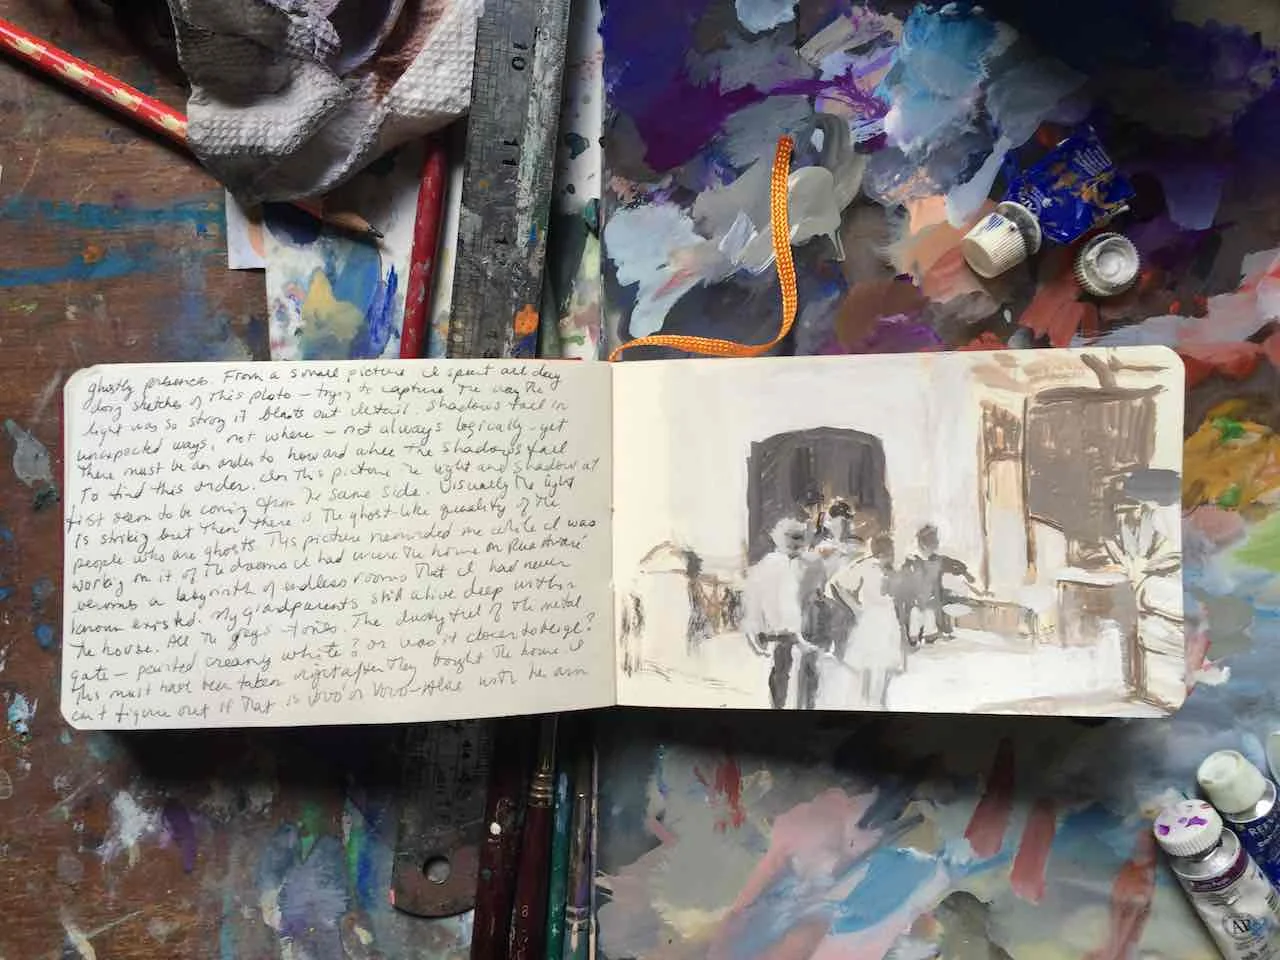 ghostly presences. From a small picture I spent all day
doing sketches of this photo – trying to capture the way the
light was so strong it blasts out detail. Shadows fall in
unexpected ways, not where – not always logically – yet
there must be an order to how and where the shadows fall
To find this order. In this picture the light and shadow at
first seem to be coming from the same side. Visually the light
is striking but then there is the ghost-like quality of the
people who are ghosts. This picture reminded me while I was
working on it of the dreams I had where the home on Rua
becomes a labyrinth of endless rooms that I had never
known existed. My grandparents still alive deep within
the house. All the greys – tones. The feel of the metal
gate – painted creamy white? or was it closer to beige?
This must have been taken right after they bought the home. I
can't figure out if that is Vovô or Vovô- with the arm
10
11